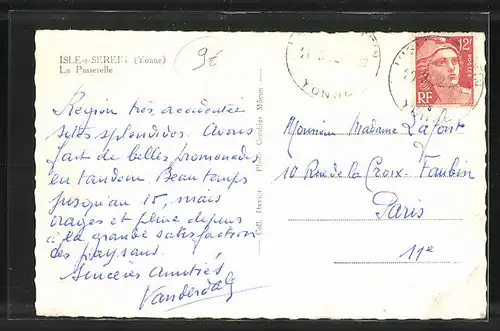 ISLE-s-SEREIN (Yonne)
La Passerelle
9€
12F
POSTES
RF
YONNE
Région très accidentée
sites splendides. Avons
fait de belles promenades
en tandem. Beau temps
jusqu'au 15, mais
orages et pluie depuis
à la grande satisfaction
des paysans.
Sincères Amitiés
Vanderdalg
Photo Combier Mâcon
Monsieur Madame Lafont
10 Rue de la Croix-Faubin
Paris
11e